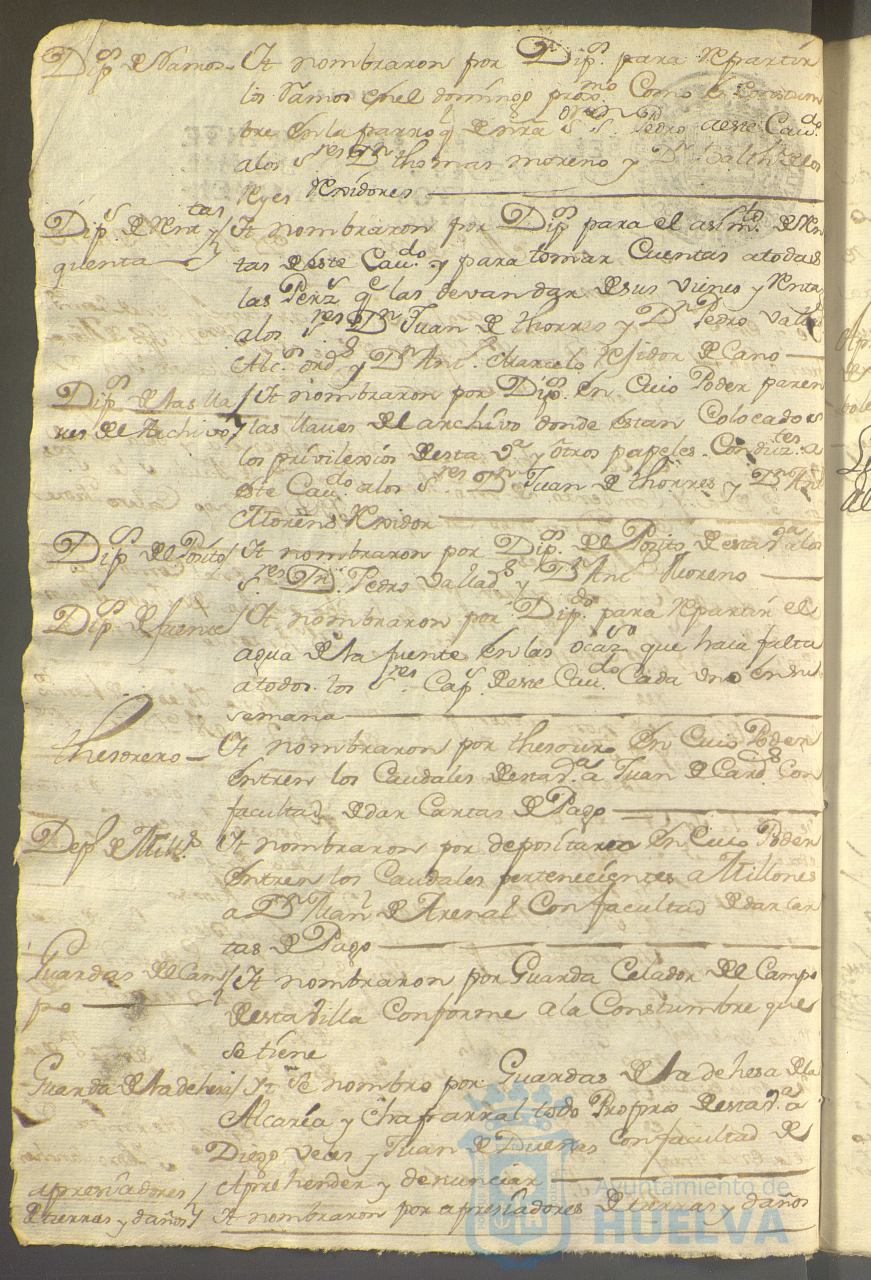 Dip.s de Ramos It nombraron por Dip.s para Repartir
los Ramos en el domingo prox.mo Como es Constum
bre en la parroq. de nra S. S. Pedro aeste Cau.do
alos S.res Dn thomas moreno y Dn Balth. delos
Reyes Rexidores
Dip.s de Rentas y quenta It nombraron por Dip.s para el asim.to de Ren
tas deeste Cau.do y para tomar Cuentas atodas
las Perz.s q.e las devan dar desus vienes y Renta
alos S.res Dn Juan de thorres y Dn Pedro Vallad.
Alc.s ord.s y Dn Ant. Marcelo Rexidor de Cano
Dip.s de las lla It nombraron por Dip.s en Cuio Poder paren
ves del Archivo las llaves del archivo donde estan Colocados
los privilexios desta Va y otros papeles Conduz.tes a
este Cau.do alos S.res Dn Juan de thorres y Dn Ant
Moreno Rexidor
Dip.s del Posito It nombraron por Dip.s del Pozito desta Va alos
S.res Dn Pedro Vallad.s y Dn Ant. Moreno
Dip.s de fuente It nombraron por Dip.do para Repartir el
agua dela fuente en las ocaz.s que haia falta
atodos los S.res Cap.s deeste Cau.do Cada vno en su
semana
thesorero It nombraron por thesorero en Cuio Poder
entren los Caudales desta Va a Juan de Card.s Con
facultad dedar Cartas de Pago
Dep.o de Mill.s It nombraron por depositario en Cuio Poder
entren los Caudales pertenecientes a Millones
a Dn Man.l de Arenal Con facultad dedar Car
tas de Pago
Guardas del Cam It nombraron por Guarda Celador del Campo
po desta Villa Conforme ala Constumbre que
se tiene
Guarda dela dehesa Yt se nombro por Guardas dela dehesa dela
Alcaria y Chaparral todo Proprio desta Va a
Diego Veles y Juan de Dueñes Con facultad de
Aprehender y denunciar
apresiadores
de tierras y daños It nombraron por apresiadores de tierras y daños
Ayuntamiento de
HUELVA